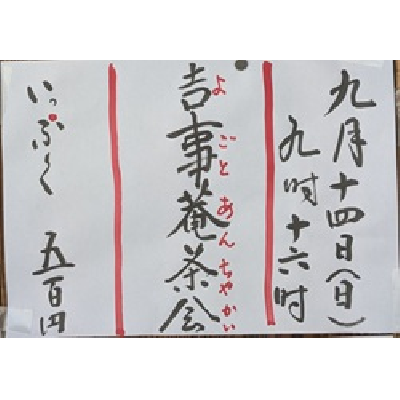 九月十四日(日)
九時十六時
吉事菴茶会
よごとあんちゃかい
いっぷく 五百円